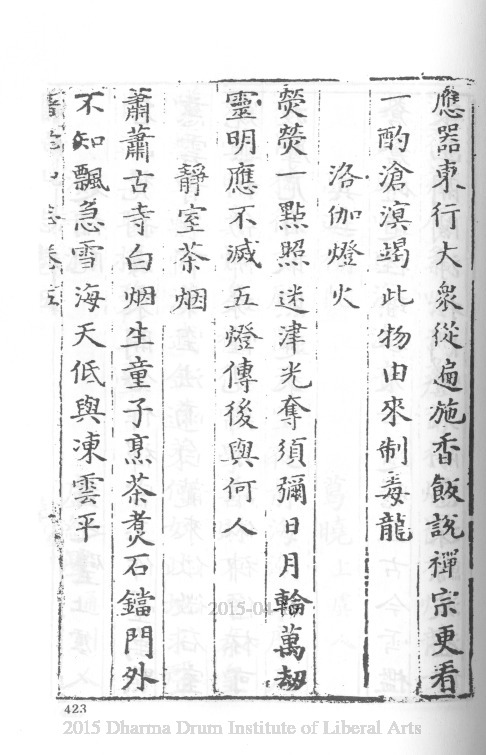 應器東行大眾從遍施香飯說禪宗更看
一酌滄溟竭此物由來制毒龍
洛伽燈火
熒熒一點照迷津光奪須彌日月輪萬劫
靈明應不滅五燈傳後與何人
靜室茶烟
蕭蕭古寺白烟生童子烹茶煮石鐺門外
不知飄急雪海天低與凍雲平
卷五
423
2015 Dharma Drum Institute of Liberal Arts